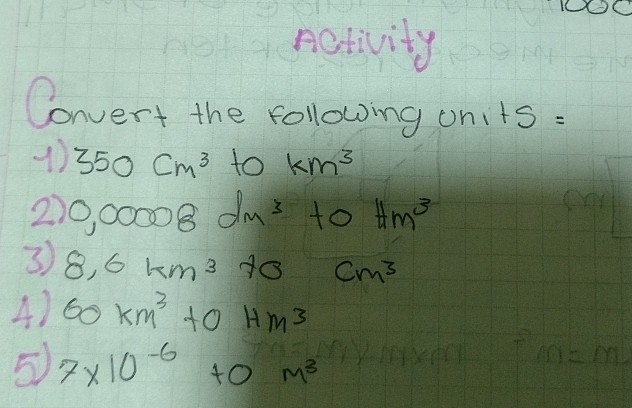 1000
Activity
Convert the following units =
1) 350 cm³ to km³
2) 0,00008 dm³ to Hm³
3) 8,6 km³ to cm³
4) 60 km³ to Hm³
5) 7x10⁻⁶ to m³